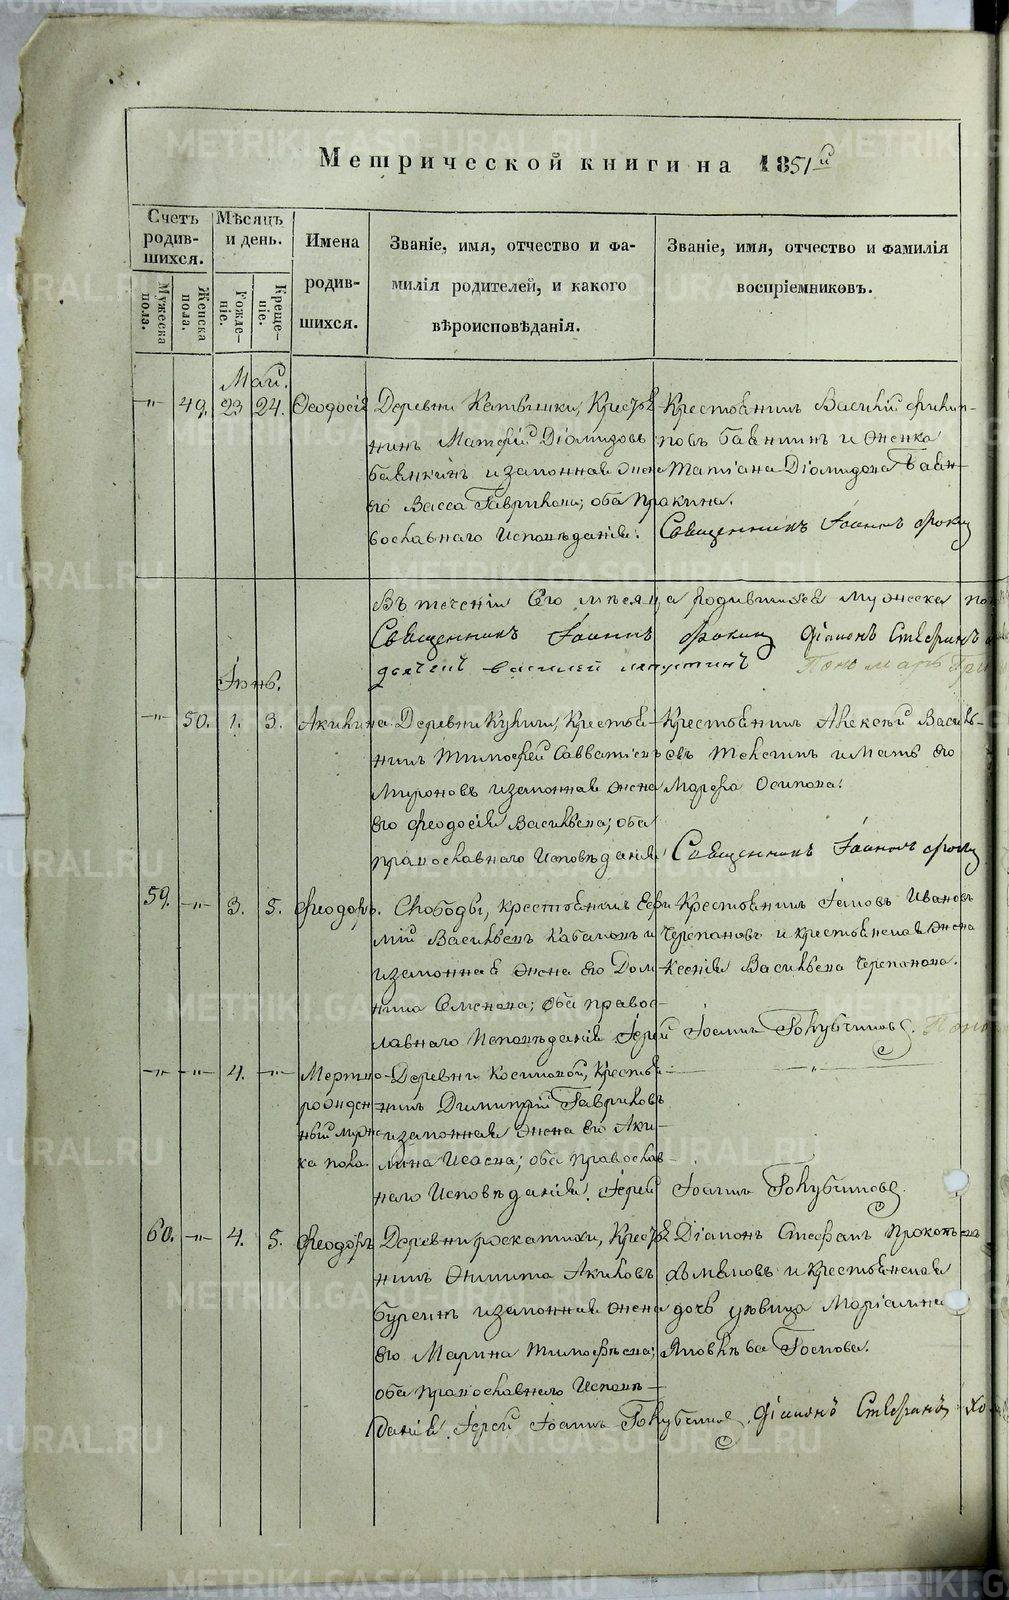 Метрической книги на 1851й
Счетъ родившихся.
Мѣсяцъ и день.
Имена родившихся.
Званіе, имя, отчество и фамилія родителей, и какого вѣроисповѣданія.
Званіе, имя, отчество и фамилія воспріемниковъ.
Мужеска пола.
Женска пола.
Рожденіе.
Крещеніе.
Май.
49. 23 24. Ѳеодосія
Деревни
Матѳій Діомидовъ
и законная жена
его Васса Гаврилова; оба пра-
вославнаго исповѣданія.
Крестьянинъ Василій Филип-
повъ и женка
Татіана Діомидова
Священникъ Іоаннъ
Въ теченіи сего мѣсяца родившихся мужеска пол
Священникъ Іоаннъ Діаконъ Стефанъ
дьячекъ Василей
Іюнь.
50. 1. 3. Акилина
Деревни Крестья-
нинъ Тимофей Савватіевъ
Мироновъ и законная жена
его Феодосія Васильева; оба
православнаго исповѣданія
Крестьянинъ Алексѣй Василь-
евъ и мать его
Марфа Осипова.
Священникъ Іоаннъ
59. 3. 5. Феодоръ.
Слободы, крестьянинъ Ефи-
мій Васильевъ
и законная жена его Дом-
ника Семенова; оба право-
славнаго исповѣданія Іерей
Крестьянинъ Іаковъ Ивановъ
Черепановъ и крестьянская жена
Ксенія Васильева Черепанова.
Іоаннъ Голубчиковъ.
4. Мертво-
рожден-
ный муже-
ска пола.
Деревни Крестья-
нинъ Димитрій Гавриловъ
и законная жена его Аки-
лина Исаева; оба православ-
наго исповѣданія. Іерей
Іоаннъ Голубчиковъ
60. 4. 5. Феодоръ
Деревни Крестья-
нинъ Никита Акиловъ
и законная жена
его Марина Тимофѣева;
оба православнаго исповѣ-
данія. Іерей Іоаннъ Голубчиковъ. Діаконъ Стефанъ
Діаконъ Стефанъ Прокопьевъ
и крестьянская
дочь дѣвица Маріамна
Яковлева
METRIKI.GASO-URAL.RU